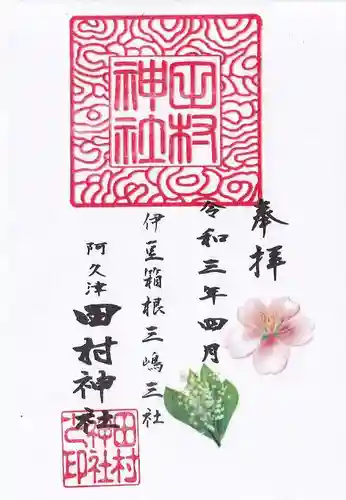 田村
神社
奉拝
令和三年四月
伊豆箱根三嶋三社
阿久津
田村神社
田村
神社
之印